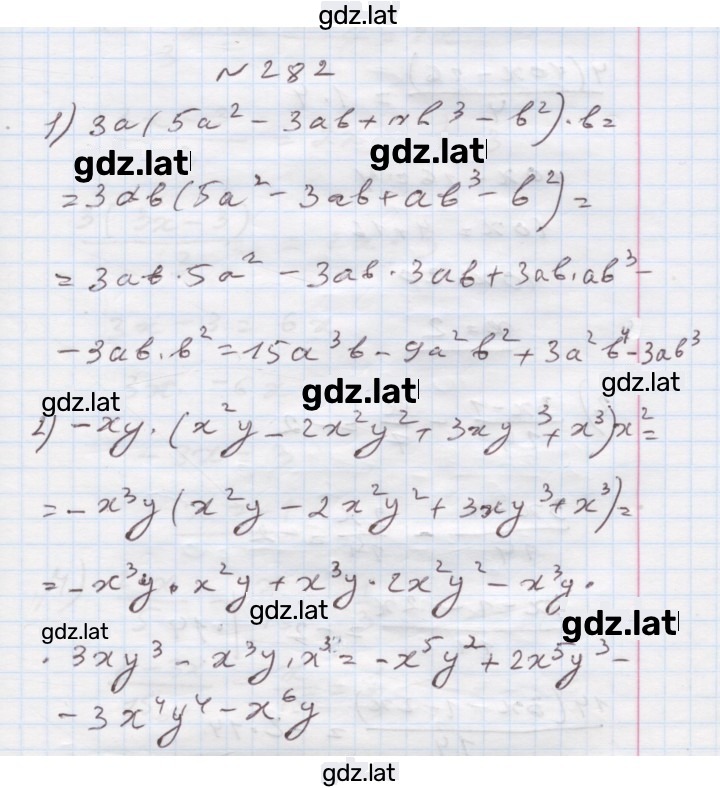 gdz.lat
№ 282
1) 3a(5a² - 3ab + ab³ - b²)·b=
gdz.lat gdz.lat
=3ab(5a² - 3ab + ab³ - b²)=
= 3ab·5a² - 3ab·3ab + 3ab·ab³ -
- 3ab·b² = 15a³b - 9a²b² + 3a²b⁴ - 3ab³
gdz.lat gdz.lat gdz.lat
2) -xy·(x²y - 2x²y² + 3xy³ + x³)x² =
= -x³y(x²y - 2x²y² + 3xy³ + x³)=
= -x³y·x²y + x³y·2x²y² - x³y·
gdz.lat gdz.lat gdz.lat
·3xy³ - x³y·x³ = -x⁵y² + 2x⁵y³ -
- 3x⁴y⁴ - x⁶y
gdz.lat